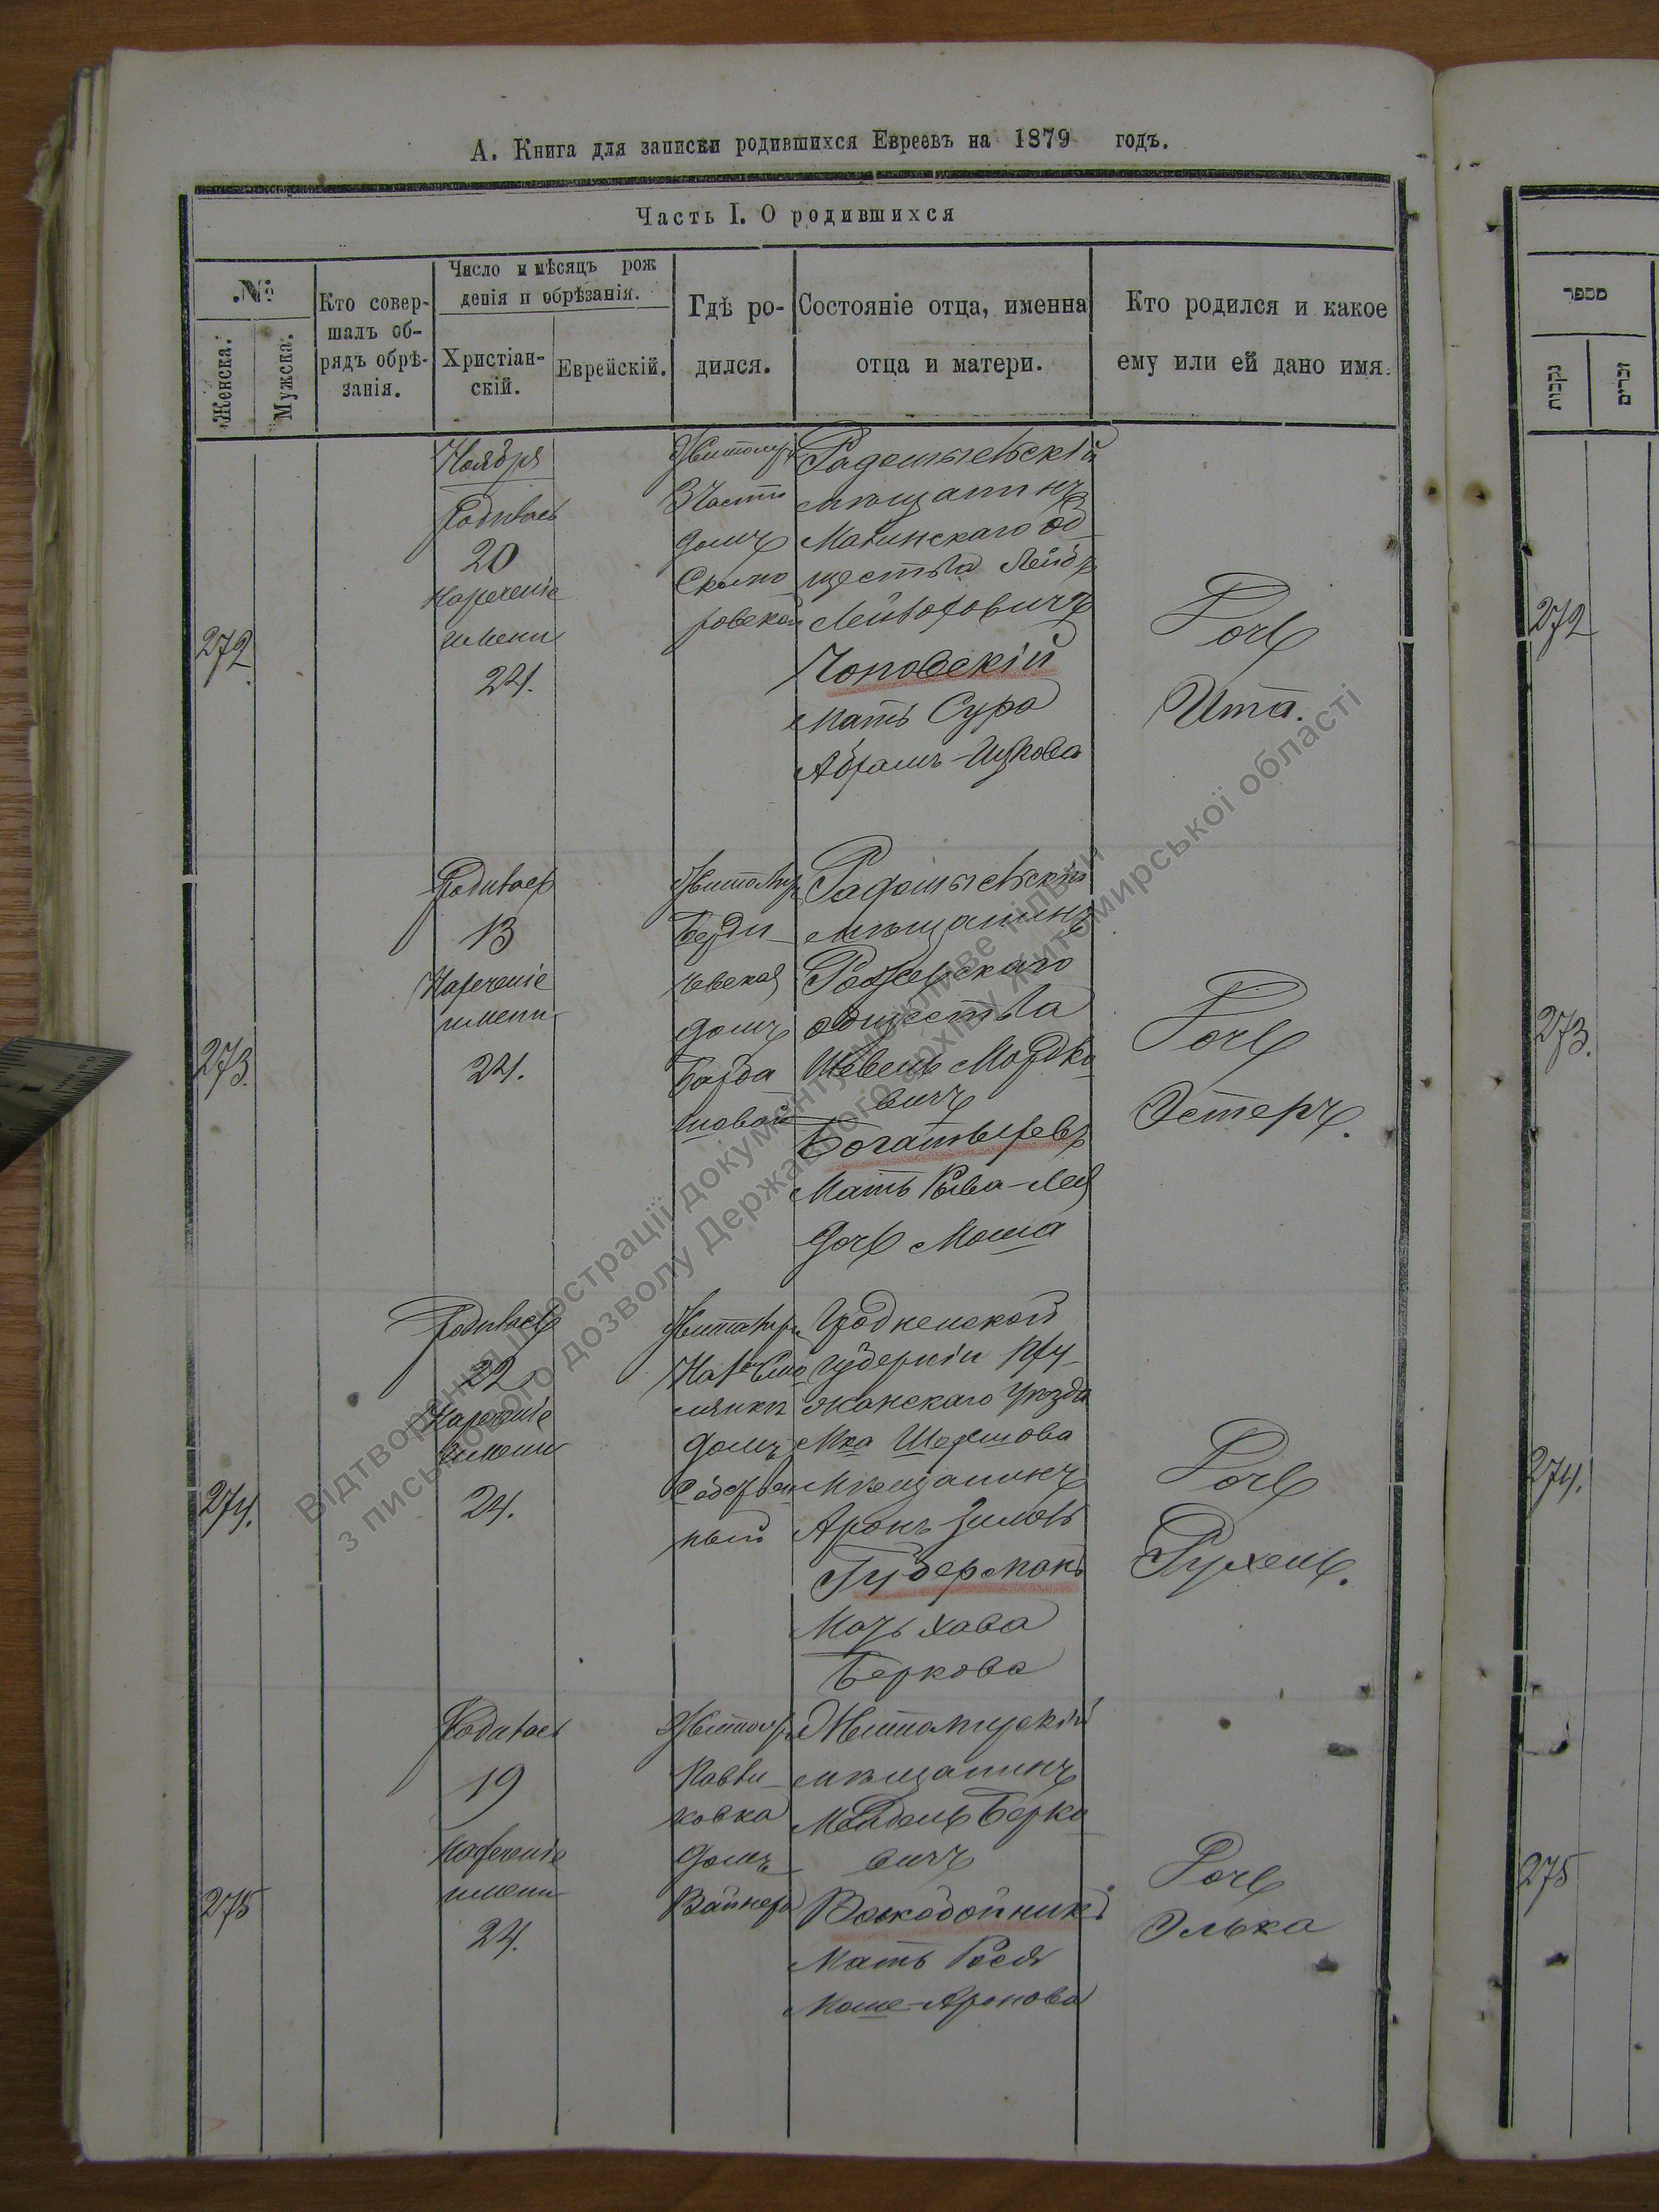 А. Книга для записки родившихся Евреевъ на 1879 годъ.
Часть I. О родившихся
№
Женска.
Мужска.
Кто совер-
шалъ об-
рядъ обрѣ-
занія.
Число и мѣсяцъ рож
денія и обрѣзанія.
Христіан-
скій.
Еврейскій.
Гдѣ ро-
дился.
Состояніе отца, именна
отца и матери.
Кто родился и какое
ему или ей дано имя.
272
Ноября
Родилась
20
Нареченіе
имени
24.
Житомір
3 Части
домъ
ровской
Радомысльскій
мѣщанинъ
Малинскаго об
щества Лейбъ
Лейбовичъ
Чоповскій
Мать Сура
Абрамъ-Ицкова
Дочь
Ита.
273.
Родилась
13
Нареченіе
имени
24.
Житомір
Берди
чевская
домъ
Барба
шовой
Радомысльскій
мѣщанинъ
общества
Шевель Мордко
вичъ
Богатыревъ
Мать Рыва-Лея
дочь Моша
Дочь
Эстеръ.
274.
Родилась
22
Нареченіе
имени
24.
Житомір
домъ
ный
Гродненской
губерніи Пру
жанскаго уѣзда
М-ка Шерешова
Мѣщанинъ
Аронъ
Губерманъ
Мать Хава
Беркова
Дочь
Рухель.
275
Родилась
19
Нареченіе
имени
24.
Житомір
ковка
домъ
Вайнера
Житомирскій
мѣщанинъ
Мендель Берко
вичъ
Воскобойникъ
Мать Рося
Моше-Аронова
Дочь
Элька
מספר
נקבות
זכרים
272
273.
274.
275
Відтворення ілюстрації документу можливе тільки
з письмового дозволу Державного архіву Житомирської області